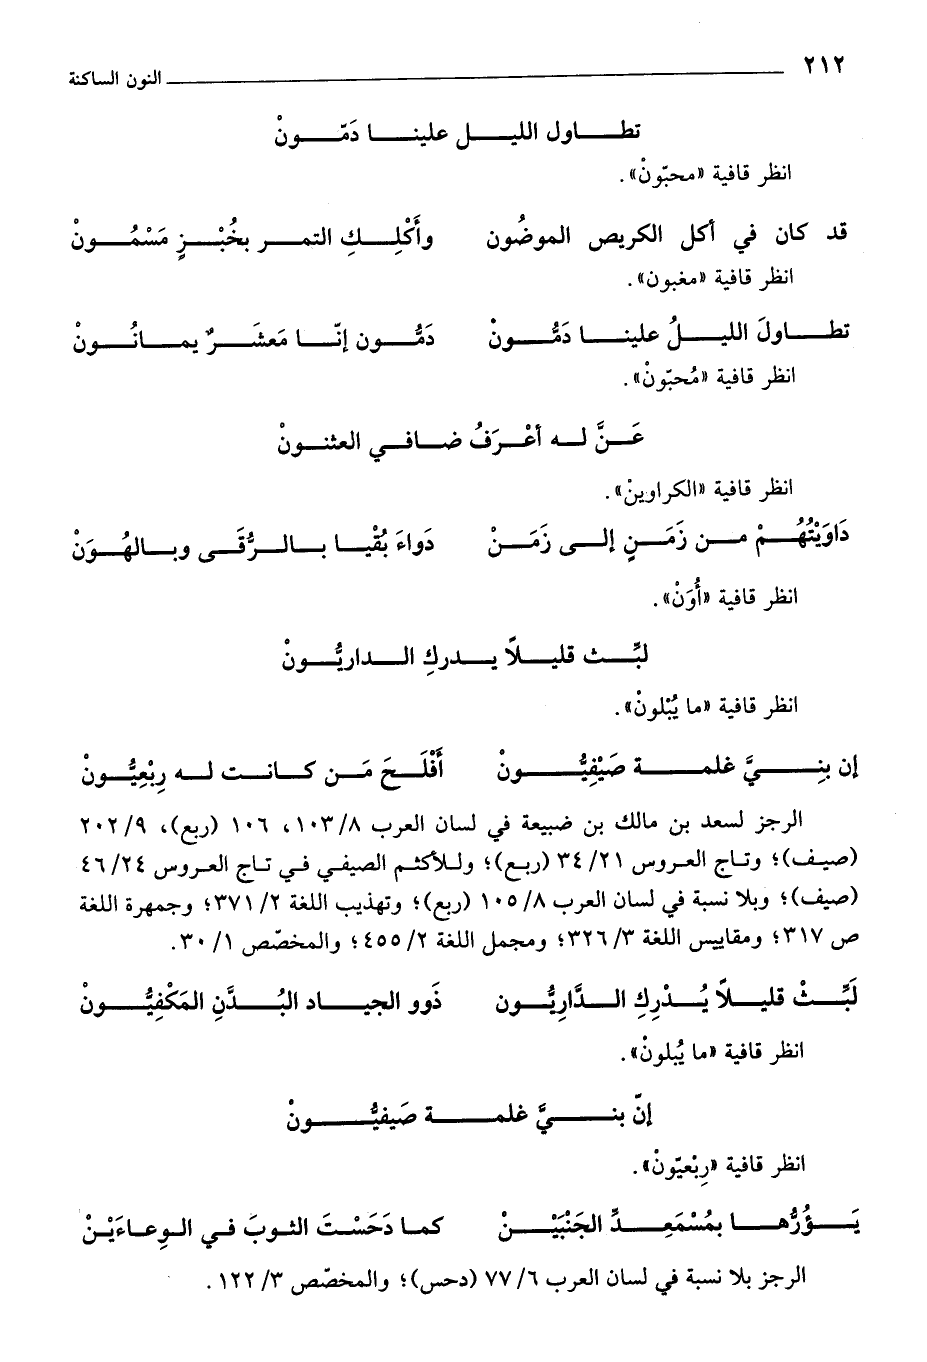 ٢١٢ النون الساكنة
تطاول الليل علينا دَمّونْ
انظر قافية «محبّونْ».
قد كان في أكل الكريص الموضُون وأَكْلِكِ التمر بخُبْزٍ مَسْمُونْ
انظر قافية «مغبون».
تطاولَ الليلُ علينا دَمُّونْ دَمُّون إنّا مَعشَرٌ يمانُونْ
انظر قافية «مُحبّونْ».
عَنَّ له أعْرَفُ ضافي العثنونْ
انظر قافية «الكراوينْ».
دَاوَيْتُهُمْ من زَمَنٍ إلى زَمَنْ دَواءَ بُقْيا بالرُّقَى وبالهُوَنْ
انظر قافية «أُوَنْ».
لبِّث قليلاً يدركِ الداريُّونْ
انظر قافية «ما يُبْلونْ».
إن بنِيَّ غلمة صَيْفِيُّونْ أَفْلَحَ مَن كانت له رِبْعِيُّونْ
الرجز لسعد بن مالك بن ضبيعة في لسان العرب ١٠٣/٨، ١٠٦ (ربع)، ٢٠٢/٩
(صيف)؛ وتاج العروس ٣٤/٢١ (ربع)؛ وللأكثم الصيفي في تاج العروس ٤٦/٢٤
(صيف)؛ وبلا نسبة في لسان العرب ١٠٥/٨ (ربع)؛ وتهذيب اللغة ٣٧١/٢؛ وجمهرة اللغة
ص ٣١٧؛ ومقاييس اللغة ٣٢٦/٣؛ ومجمل اللغة ٤٥٥/٢؛ والمخصّص ٣٠/١.
لَبِّثْ قليلاً يُدْرِكِ الدَّارِيُّون ذَوو الجياد البُدَّنِ المَكْفِيُّونْ
انظر قافية «ما يُبلونْ».
إنّ بنيَّ غلمة صَيفيُّونْ
انظر قافية «رِبْعيّونْ».
يَؤُرُّها بمُسْمَعِدِّ الجَنْبَيْنْ كما دَحَسْتَ الثوبَ في الوِعاءَيْنْ
الرجز بلا نسبة في لسان العرب ٧٧/٦ (دحس)؛ والمخصّص ١٢٢/٣.